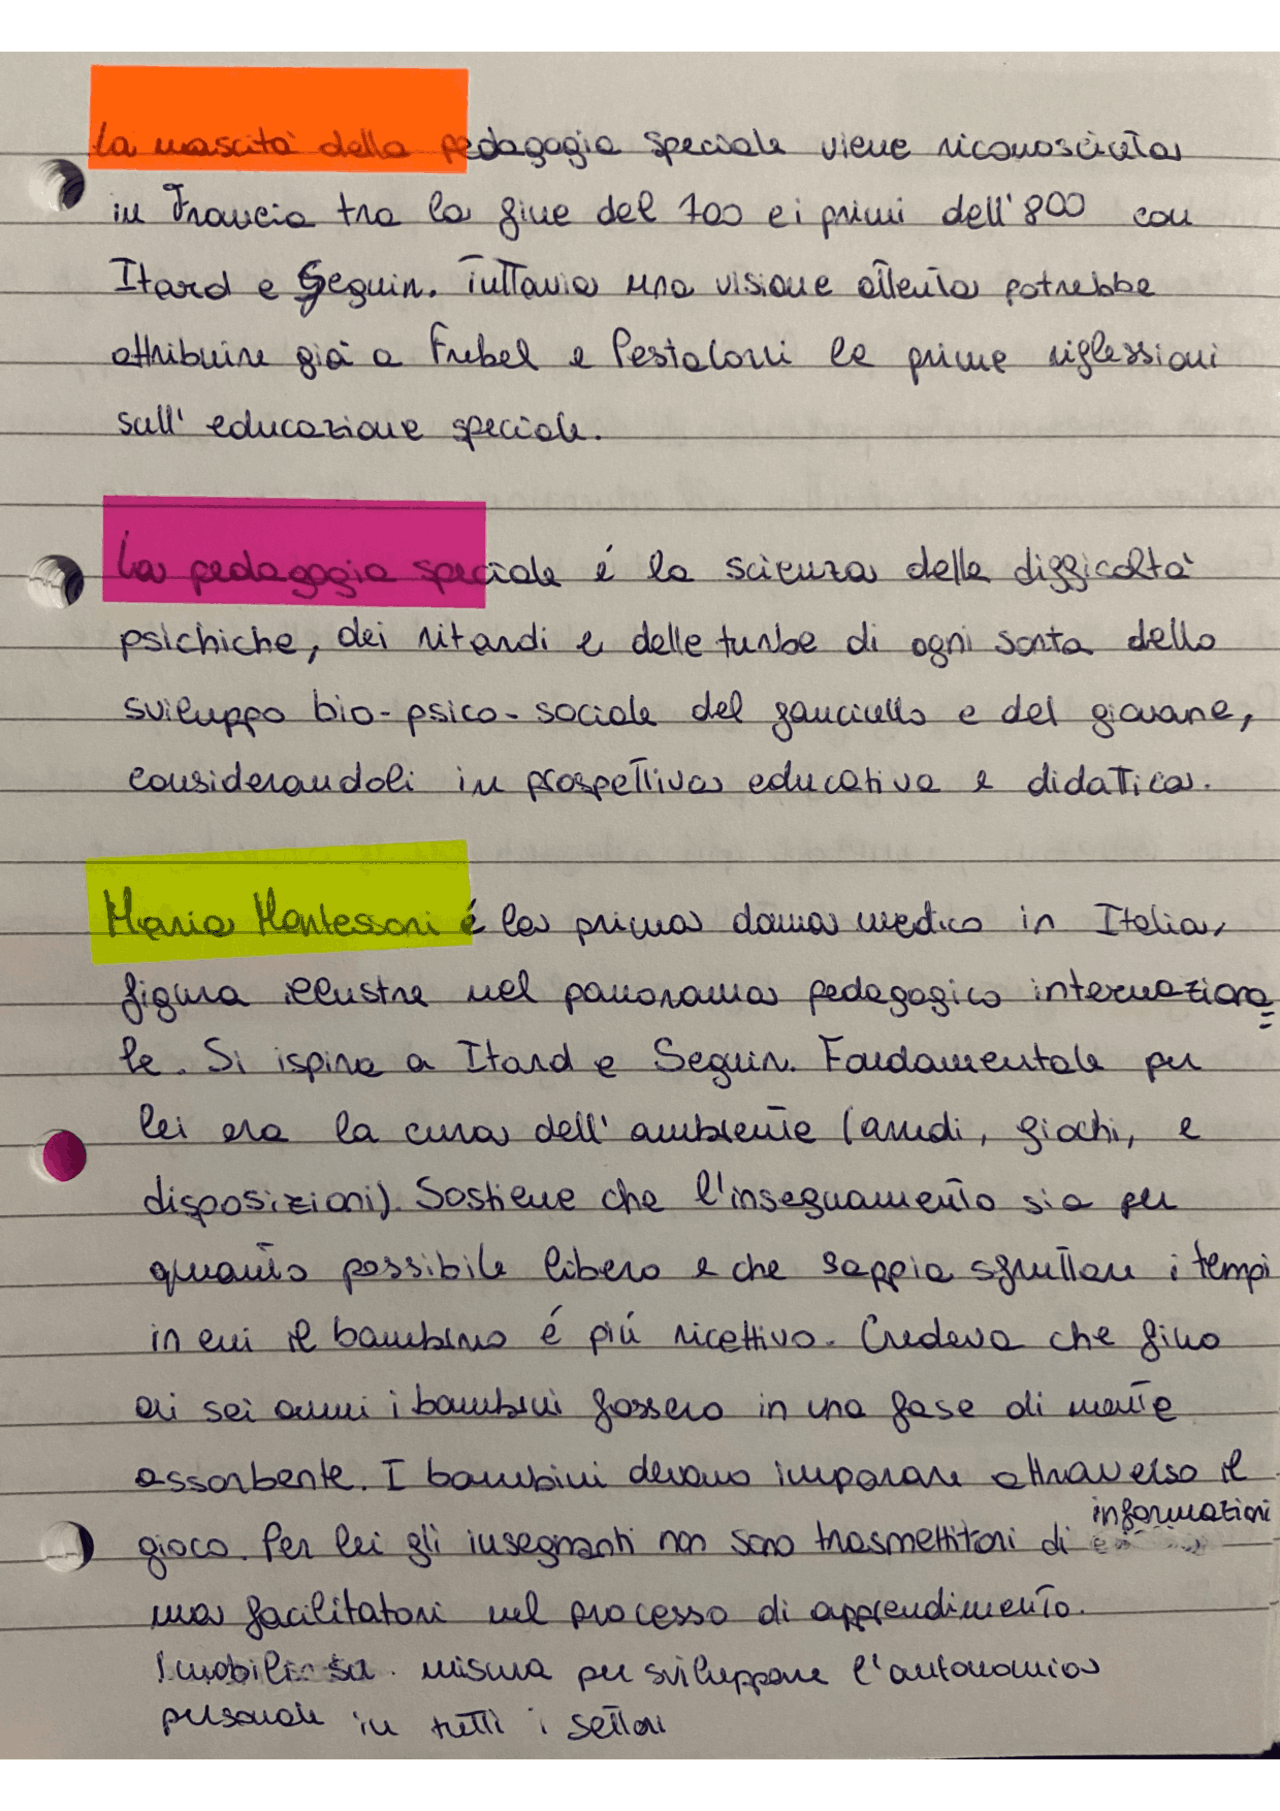 La nascita della pedagogia speciale viene riconosciuta
in Francia tra la fine del 700 e i primi dell'800 con
Itard e Seguin. Tuttavia una visione attenta potrebbe
attribuire già a Frebel e Pestalozzi le prime riflessioni
sull'educazione speciale.
La pedagogia speciale é la scienza delle difficoltà
psichiche, dei ritardi e delle turbe di ogni sorta dello
sviluppo bio-psico-sociale del fanciullo e del giovane,
considerandoli in prospettiva educativa e didattica.
Maria Montessori é la prima donna medico in Italia,
figura illustre nel panorama pedagogico internaziona
le. Si ispira a Itard e Seguin. Fondamentale per
lei era la cura dell'ambiente (arredi, giochi, e
disposizioni). Sostiene che l'insegnamento sia per
quanto possibile libero e che sappia sfruttare i tempi
in cui il bambino é più ricettivo. Credeva che fino
ai sei anni i bambini fossero in una fase di mente
assorbente. I bambini devono imparare attraverso il
gioco. Per lei gli insegnanti non sono trasmettitori di informazioni
ma facilitatori nel processo di apprendimento.
I mobili su misura per sviluppare l'autonomia
personale in tutti i settori